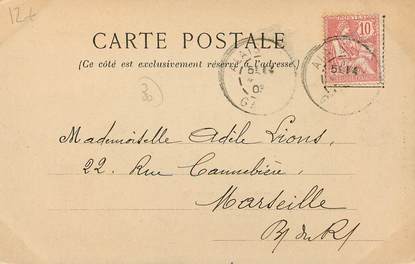 12+
CARTE POSTALE
(Ce côté est exclusivement réservé à l'adresse.)
POSTES
10
Mademoiselle Adèle Lions,
22, Rue Cannebière,
Marseille
B. du R.